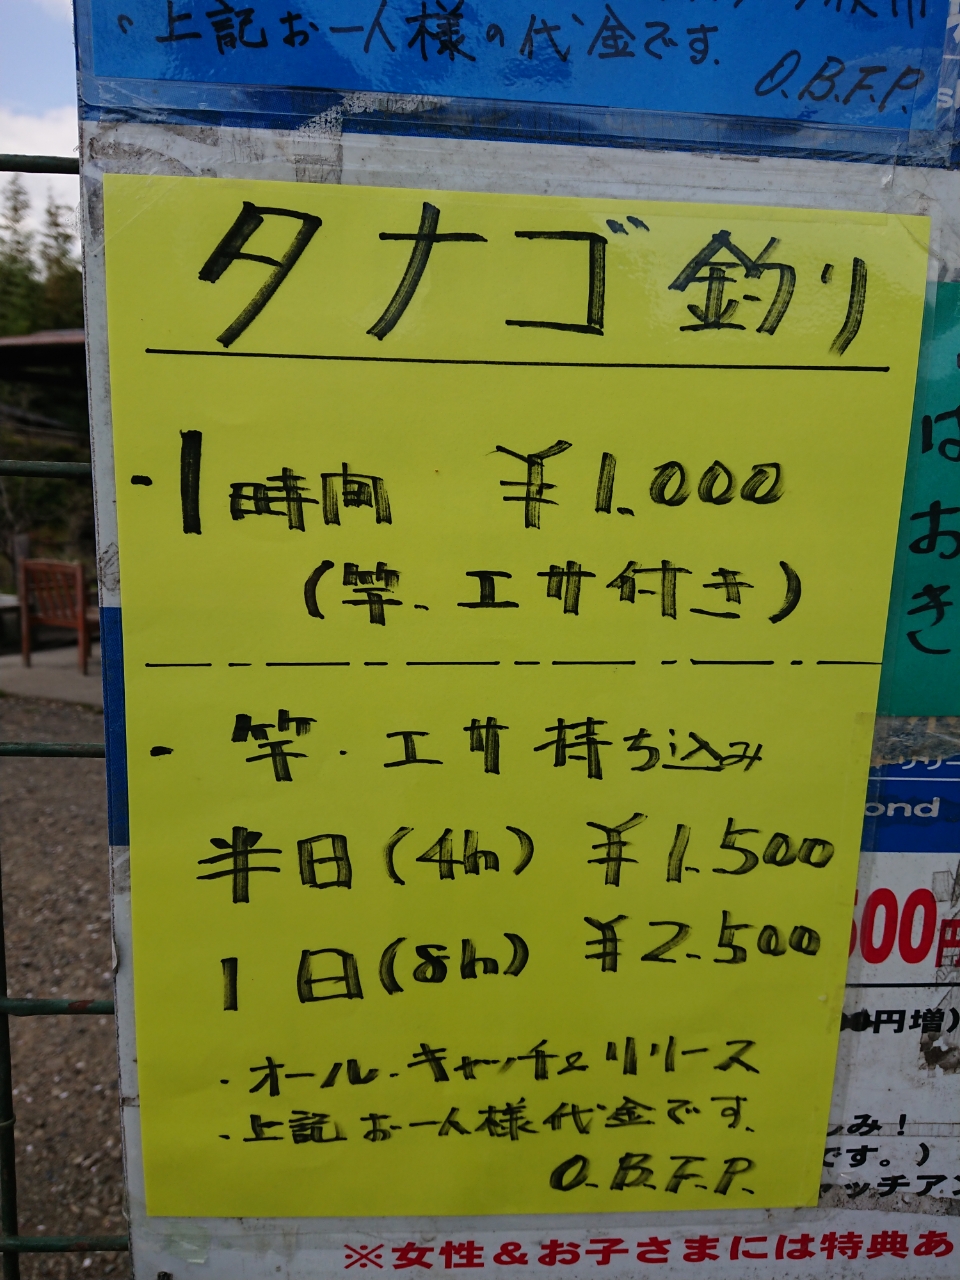 上記お一人様の代金です.
O.B.F.P.
タナゴ釣り
・1時間 ¥1.000
(竿、エサ付き)
・竿・エサ持ち込み
半日(4h) ¥1.500
1日(8h) ¥2.500
・オール・キャッチ&リリース
・上記お一人様代金です.
O.B.F.P.
はおき
ond
500円
円増)
しみ!
です。)
ャッチアン
※女性&お子さまには特典あ